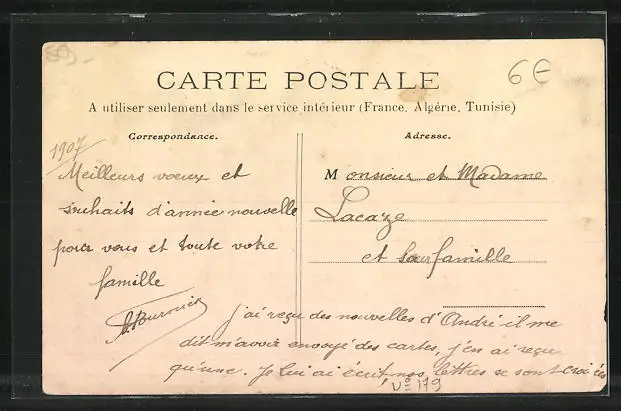 6€
CARTE POSTALE
A utiliser seulement dans le service intérieur (France, Algérie, Tunisie)
Correspondance.
Adresse.
1907
Meilleurs voeux et
souhaits d'année nouvelle
pour vous et toute votre
famille
Monsieur et Madame
Lacaze
et leur famille
j'ai reçu des nouvelles d'André il me
dit m'avoir envoyé des cartes, j'en ai reçu
qu'une. Je lui ai écrit, nos lettres se sont croisées
N° 179